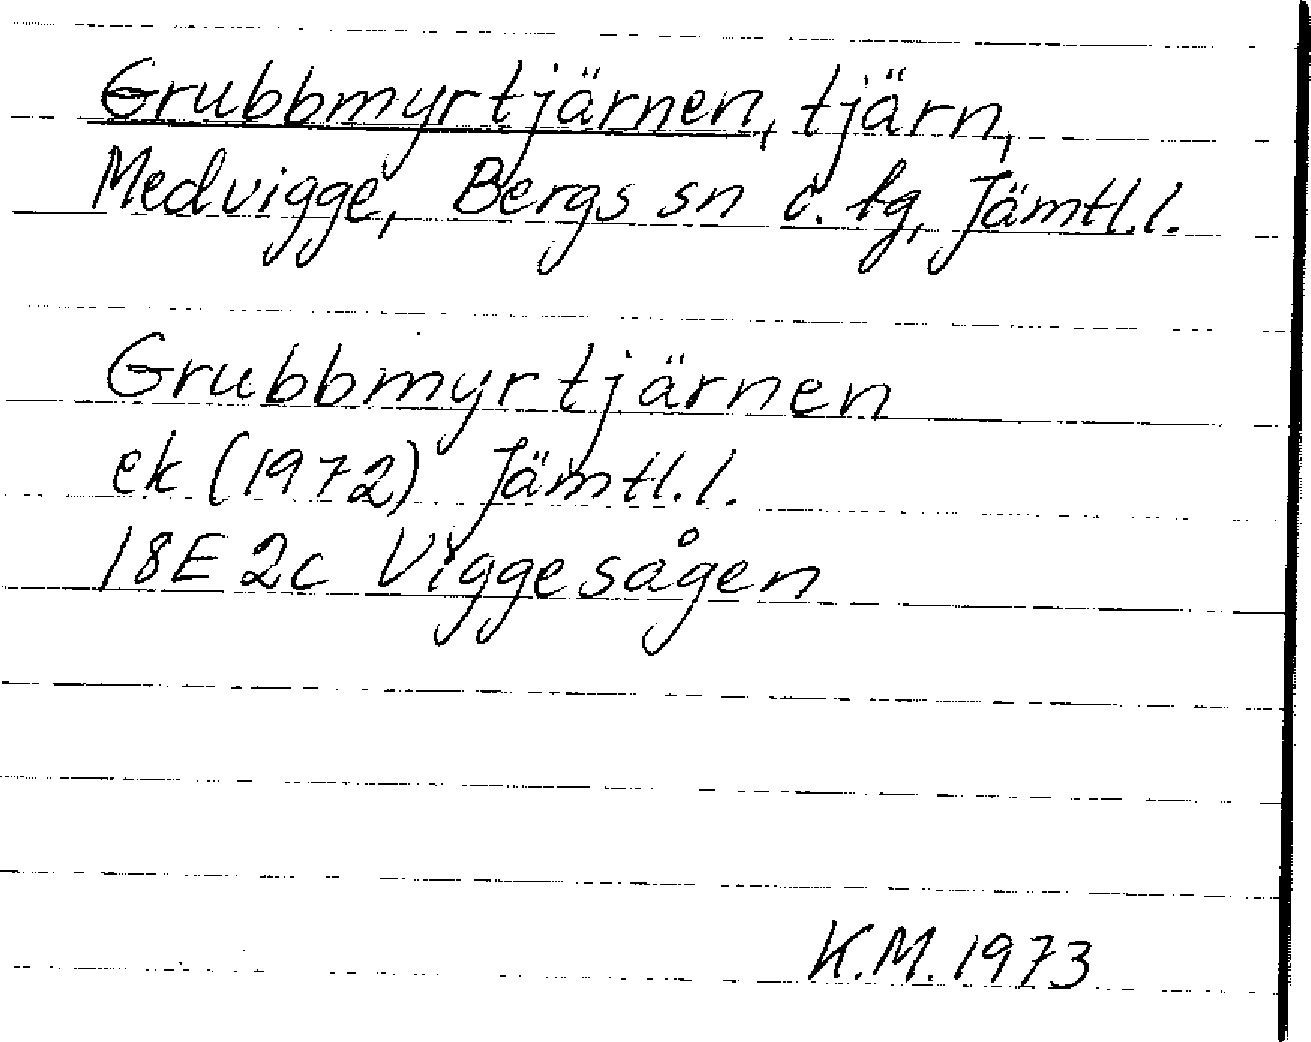 Grubbmyrtjärnen, tjärn,
Medvigge, Bergs sn o. tg, Jämtl.l.
Grubbmyrtjärnen
ek (1972) Jämtl.l.
18E 2c Viggesågen
K.M. 1973